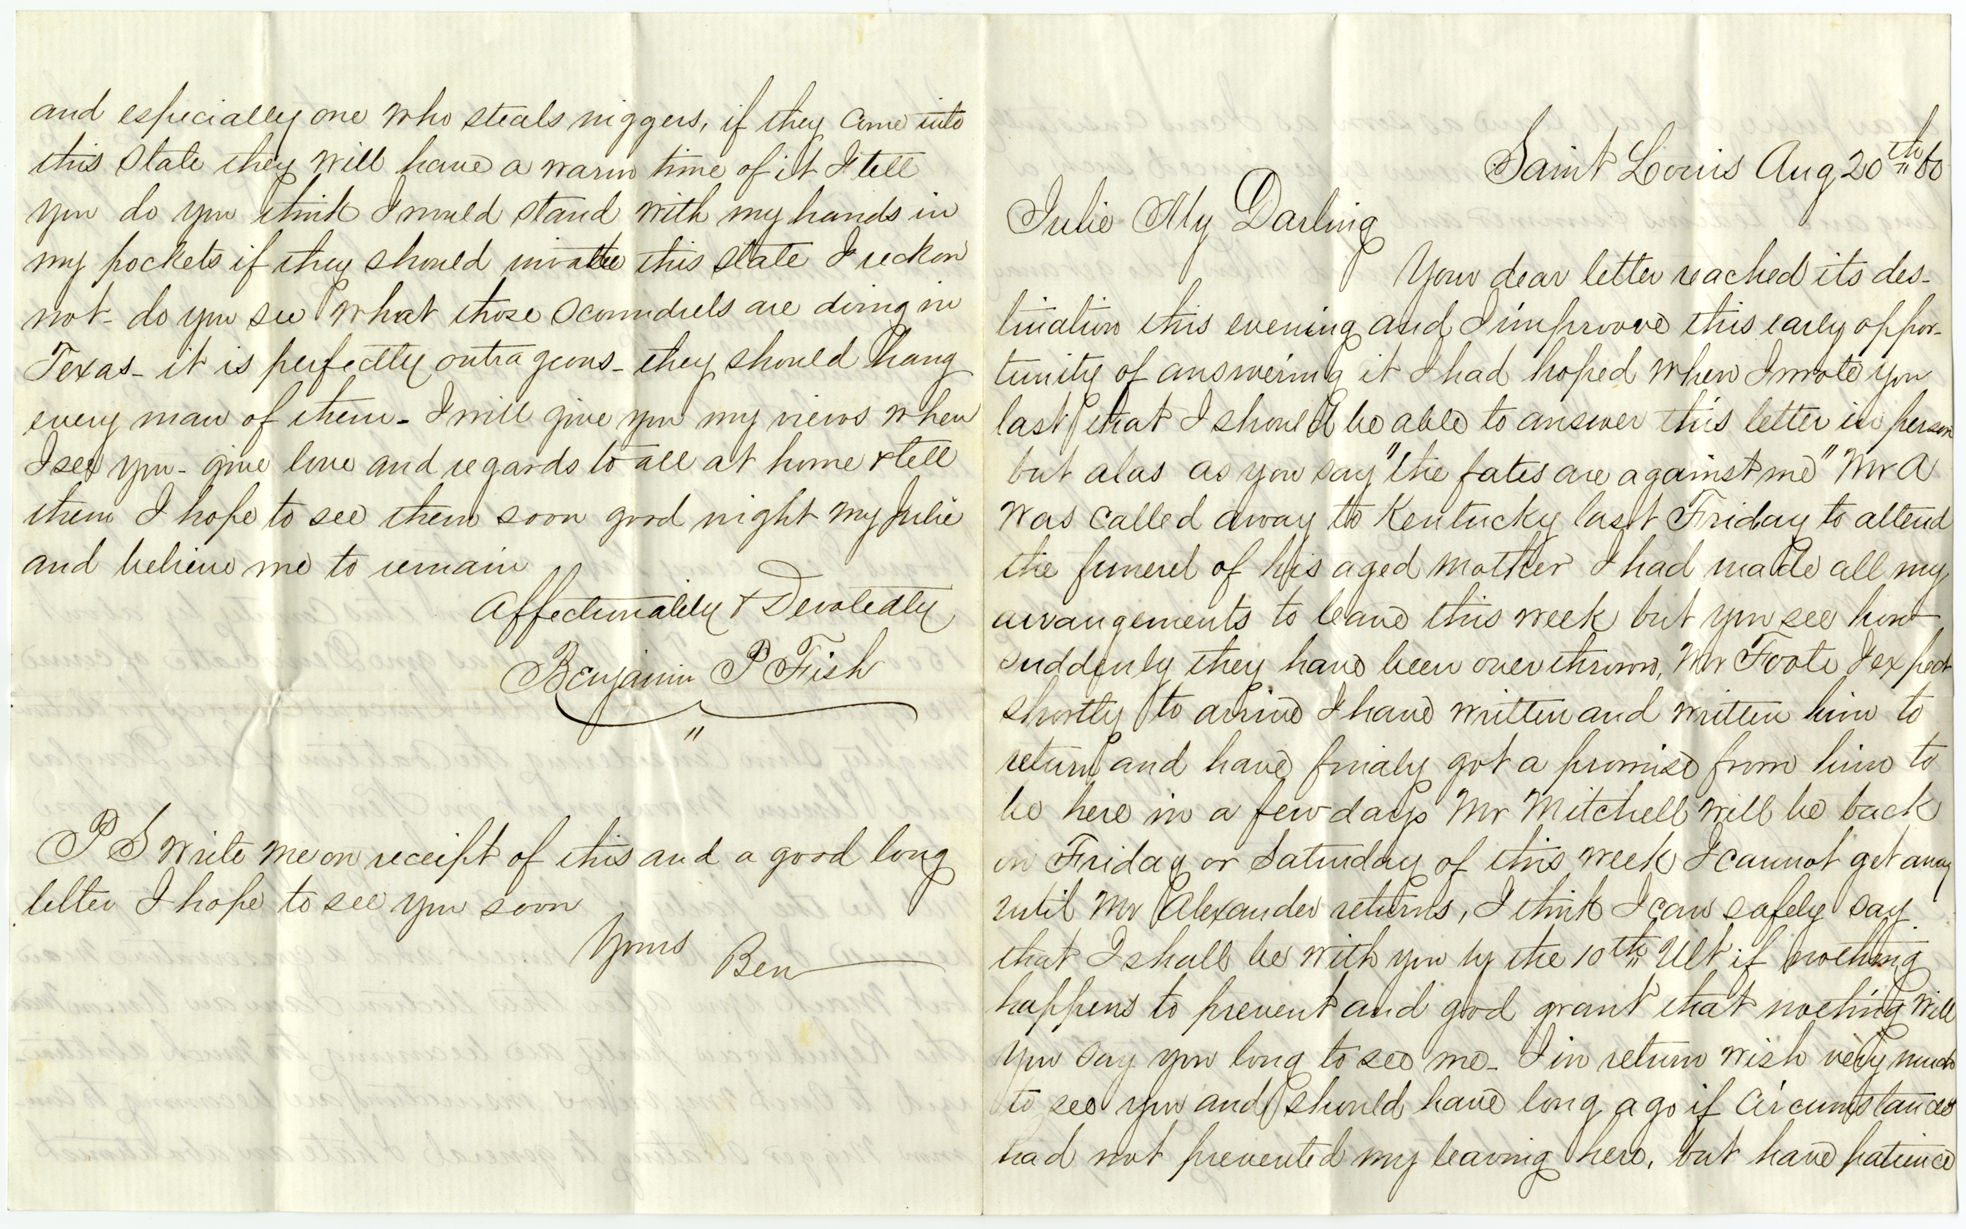 Saint Louis Aug 20th " 60
Julie My Darling
Your dear letter reached its des-
tination this evening and I improove this early oppor-
tunity of answering it I had hoped when I wrote you
last that I should be able to answer this letter in person
but alas as you say "the fates are against me" Mr A
was called away to Kentucky last Friday to attend
the funerel of his aged mother I had made all my
arrangements to leave this week but you see how
suddenly they have been overthrown, Mr Foote I expect
shortly to arrive I have written and written him to
return and have finaly got a promise from him to
be here in a few days Mr Mitchell will be back
on Friday or Saturday of this week I cannot get away
until Mr Alexander returns, I think I can safely say
that I shall be with you by the 10th " Ult if nothing
happens to prevent and god grant that nothing will
you say you long to see me - I in return wish very much
to see you and should have long ago if circumstances
had not prevented my leaving here, but have patience
and espicially one who steals niggers, if they come into
this State they will have a warm time of it I tell
you do you think I would stand with my hands in
my pockets if they should invade this state I reckon
not - do you see what those scoundrels are doing in
Texas - it is perfectly outrageous - they should hang
every man of them - I will give you my views when
I see you - give love and regards to all at home & tell
them I hope to see them soon good night my Julie
and believe me to remain
Affectionately & Devotedly
Benjamin P Fish
"
P S write me on receipt of this and a good long
letter I hope to see you soon
Yours Ben